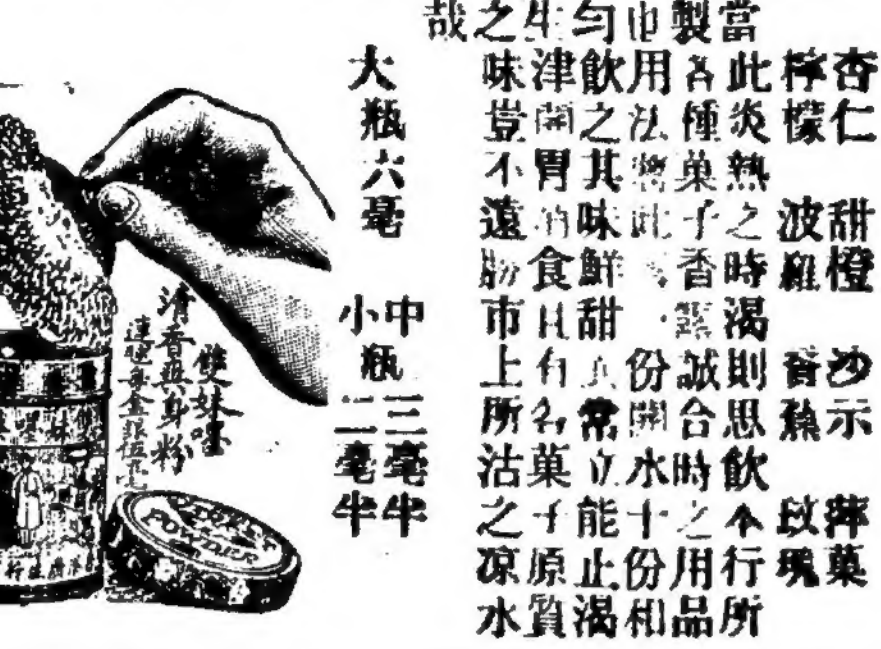 杏仁 甜橙 沙示 蘋菓
檸檬 波羅 香蕉 玫瑰
當此炎熱之時渴則思飲本行所
製各種菓子香露誠合時之用品
也用法將此一份開水十份相
勻飲之其味鮮甜異常立能止渴
生津開胃消食且有名菓子原質
之味豈不遠勝市上所沽之凉水
哉
大瓶六毫
中瓶三毫半
小瓶二毫半
雙妹嚜
清香爽身粉
每盒銀伍毫
POWDER